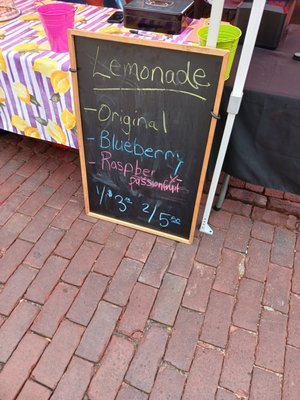 Lemonade
- Original
- Blueberry
- Raspberry
passionfruit
1/$3 2/5.00